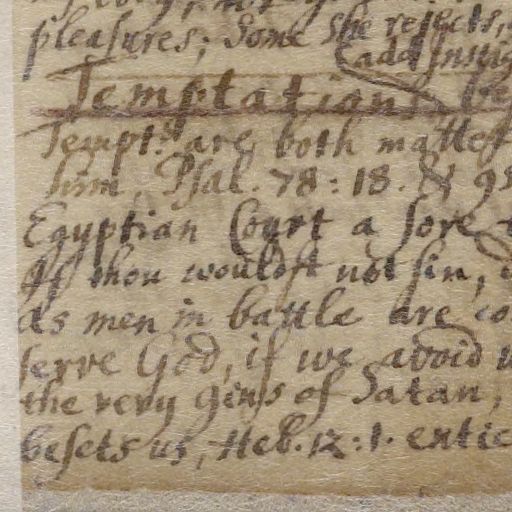 pleasures; Some she rejects,
(add Instig
Temptations, be
Tempt:ns are both matter
him. Psal. 78:18. & 95
Egyptian Court a sore
If thou wouldst not sin,
as men in battle are co
serve God, if we avoid
the very gins of Satan,
besets us, Heb. 12:1. entic